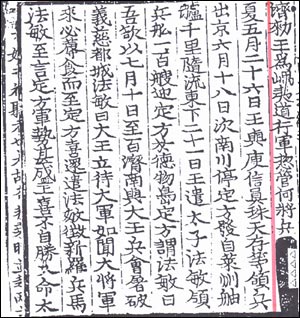 濟勅王爲嵎夷道行軍摠管何將兵
夏五月二十六日王與庾信眞珠天存等領兵
出京六月十八日次南川停定方發自萊州舳
艫千里隨流東下二十一日王遣太子法敏領
兵船一百艘迎定方於德物島定方謂法敏曰
吾欲以七月十日至百濟南與大王兵會屠破
義慈都城法敏曰大王立待大軍如聞大將軍
來必蓐食而至定方喜還遣法敏徵新羅兵馬
法敏至言定方軍勢甚盛王喜不自勝又命太